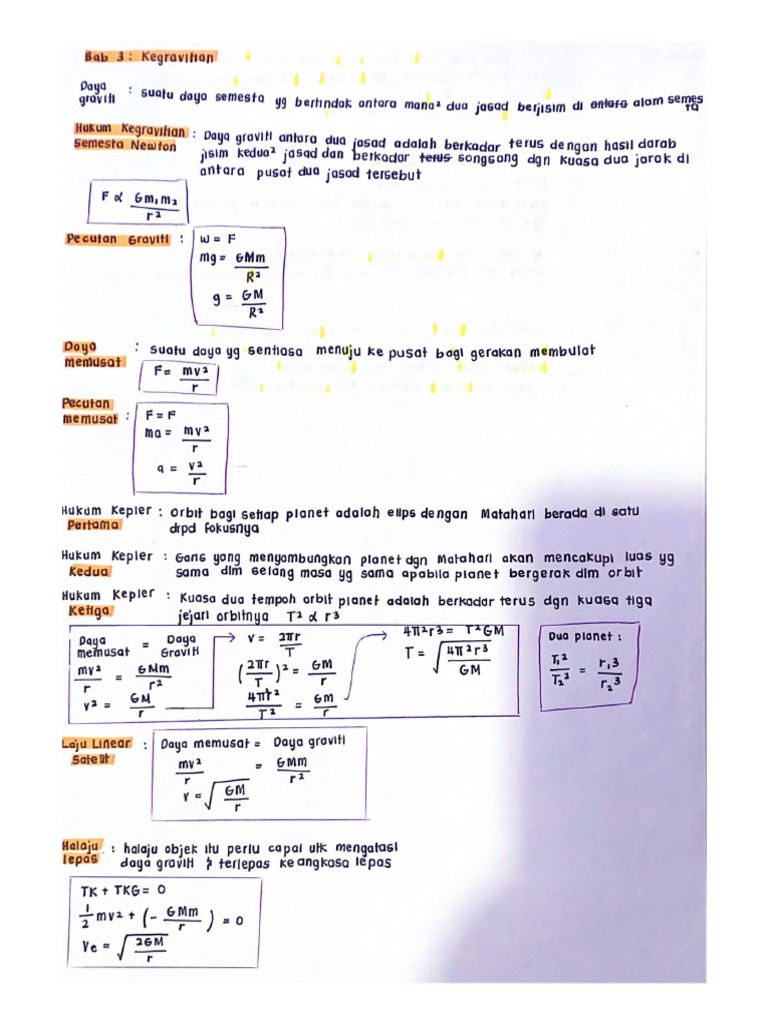 Bab 3 : Kegravitian
Daya graviti : suatu daya semesta yg bertindak antara mana² dua jasad berjisim di antara alam semesta
Hukum Kegravitian Semesta Newton : Daya graviti antara dua jasad adalah berkadar terus dengan hasil darab
jisim kedua² jasad dan berkadar terus songsang dgn kuasa dua jarak di
antara pusat dua jasad tersebut
F ∝ Gm₁m₂ / r²
Pecutan Graviti : w = F
mg = GMm / R²
g = GM / R²
Daya memusat : suatu daya yg sentiasa menuju ke pusat bagi gerakan membulat
F = mv² / r
Pecutan memusat : F = F
ma = mv² / r
a = v² / r
Hukum Kepler Pertama : Orbit bagi setiap planet adalah elips dengan Matahari berada di satu
drpd fokusnya
Hukum Kepler Kedua : Garis yang menyambungkan planet dgn Matahari akan mencakupi luas yg
sama dlm selang masa yg sama apabila planet bergerak dlm orbit
Hukum Kepler Ketiga : Kuasa dua tempoh orbit planet adalah berkadar terus dgn kuasa tiga
jejari orbitnya T² ∝ r³
Daya memusat = Daya Graviti
mv² / r = GMm / r²
v² = GM / r
v = 2πr / T
(2πr / T)² = GM / r
4πr² / T² = Gm / r
4π²r³ = T²GM
T = √(4π²r³ / GM)
Dua planet :
T₁² / T₂² = r₁³ / r₂³
Laju Linear Satelit : Daya memusat = Daya graviti
mv² / r = GMm / r²
v = √(GM / r)
Halaju lepas : halaju objek itu perlu capai utk mengatasi
daya graviti & terlepas ke angkasa lepas
TK + TKG = 0
1/2 mv² + (- GMm / r) = 0
Ve = √(2GM / r)